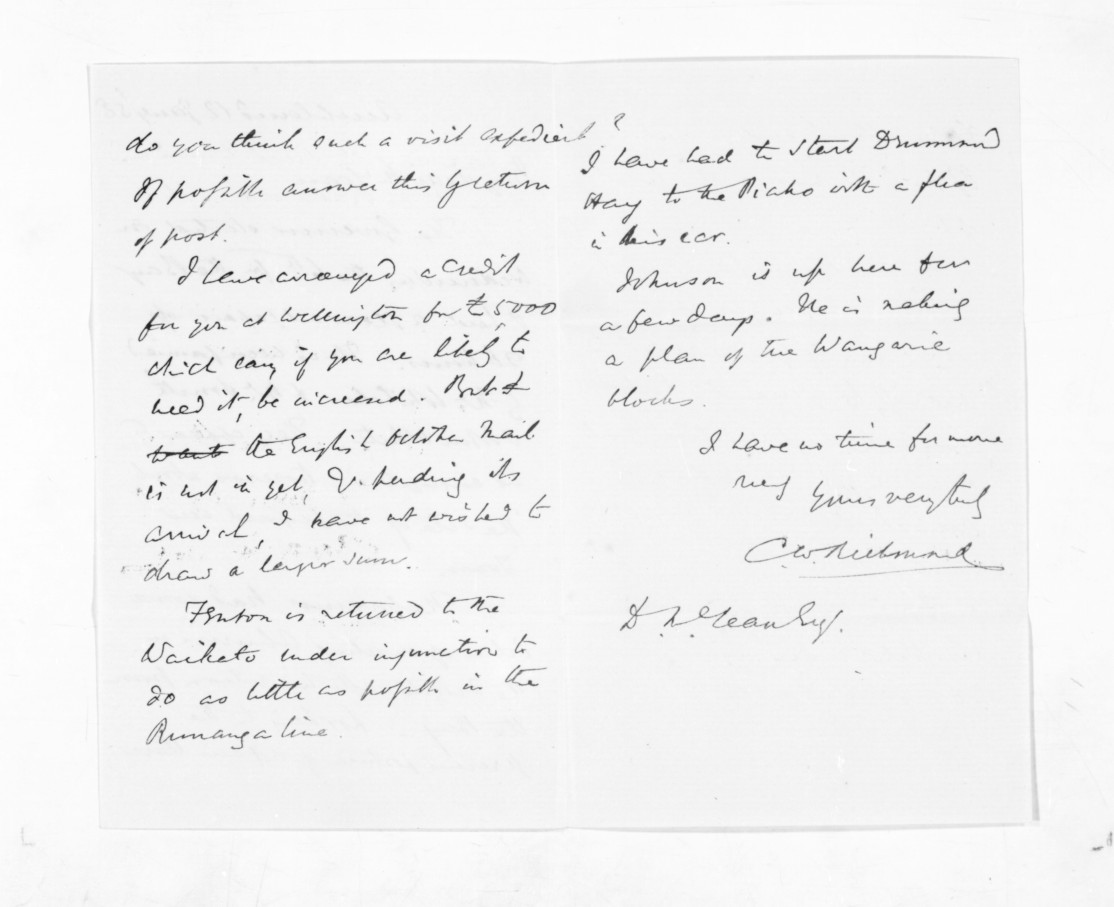 do you think such a visit expedient?
If possible answer this by return
of post.
I have arranged a credit
for you at Wellington for £5000
which can, if you are likely to
need it, be increased. But
the English October Mail
is not in yet, & pending its
arrival, I have not wished to
draw a larger sum.
Fenton is returned to the
Waikato under injunction to
do as little as possible in the
Runanga line.
I have had to start Drummond
Hay to the Piako with a flea
in his ear.
Johnson is up here for
a few days. He is making
a plan of the Wangarie
blocks.
I have no time for more
Yours very truly
C. W. Richmond
D. McLean Esq.